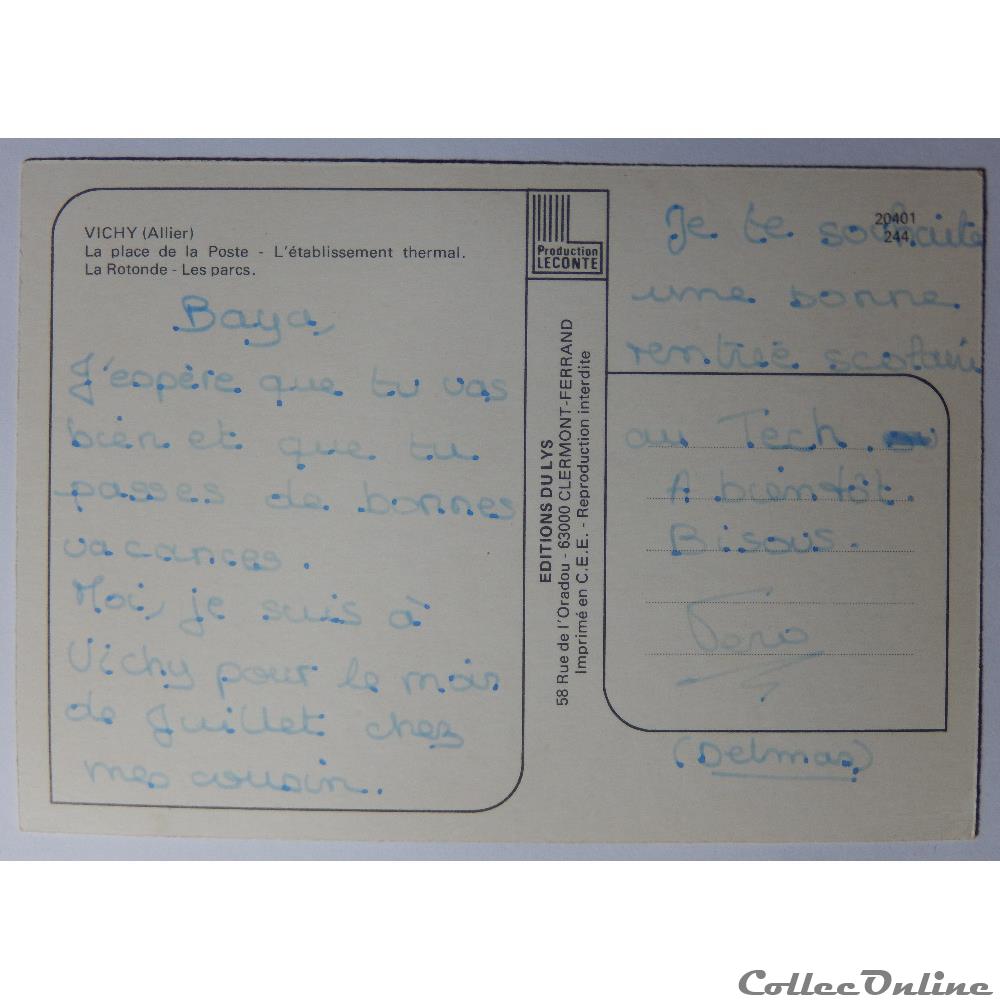 VICHY (Allier)
La place de la Poste - L'établissement thermal.
La Rotonde - Les parcs.
Baya,
J'espère que tu vas
bien et que tu
passes de bonnes
vacances.
Moi, je suis à
Vichy pour le mois
de Juillet chez
mes cousin.
Production
LECONTE
EDITIONS DU LYS
58 Rue de l'Oradou - 63000 CLERMONT-FERRAND
Imprimé en C.E.E. - Reproduction interdite
20401
244
Je te souhaite
une bonne
rentrée scolaire
au Tech.
A bientôt.
Bisous.
(Delmas)
CollecOnline